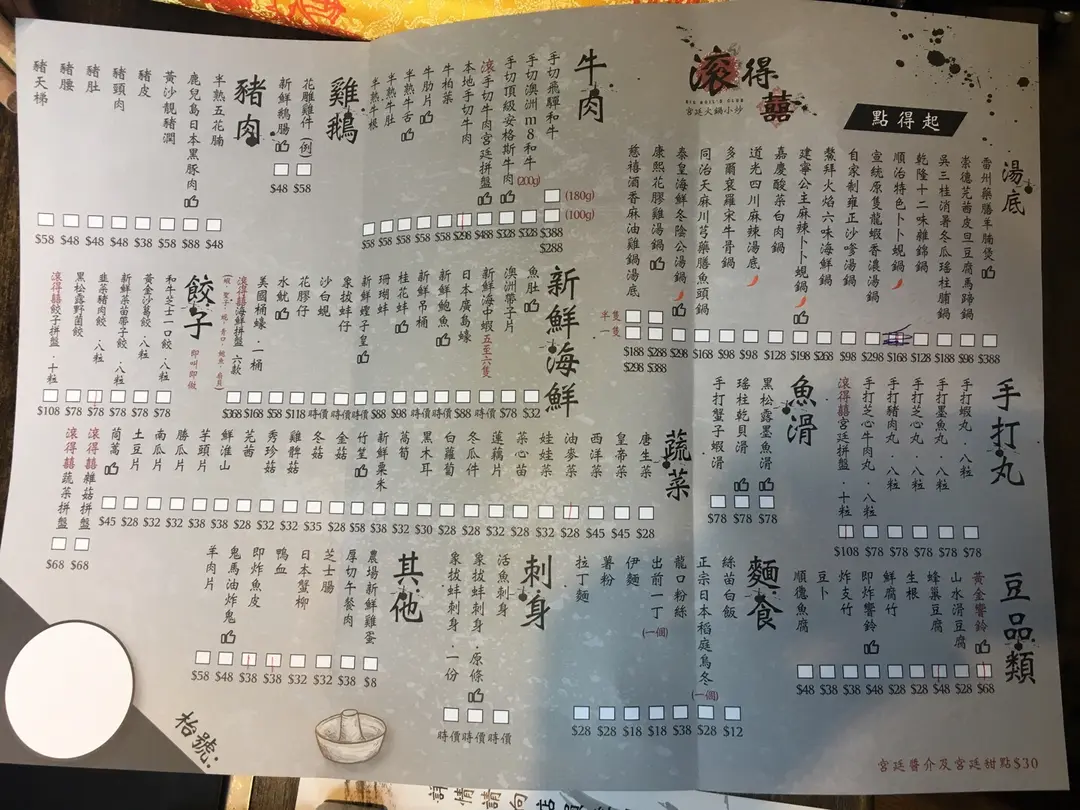 滾得囍
宮廷火鍋小炒
點得起
湯底
雷州藥膳羊腩煲 $388
崇德芫茜皮旦豆腐馬蹄鍋 $98
吳三桂消暑冬瓜瑤柱脯鍋 $188
乾隆十二味雜錦鍋 $128
順治特色卜卜蜆鍋 $168
宣統原隻龍蝦香濃湯鍋 $298
自家制雍正沙嗲湯鍋 $98
鰲拜火焰六味海鮮鍋 $268
建寧公主麻辣卜卜蜆鍋 $198
嘉慶酸菜白肉鍋 $128
道光四川麻辣湯底 $98
多爾袞羅宋牛骨鍋 $98
同治天麻川芎藥膳魚頭鍋 $168
泰皇海鮮冬陰公湯鍋 $298
康熙花膠雞湯鍋 半隻 $288 一隻 $388
慈禧酒香麻油雞鍋湯底 半隻 $188 一隻 $298
牛肉
手切飛騨和牛 (180g) $388 (100g) $288
手切澳洲m8和牛(200g) $328
手切頂級安格斯牛肉 $328
滾手切牛肉宮廷拼盤 $488
本地手切牛肉 $298
牛柏葉 $58
牛肋片 $58
半熟牛舌 $58
半熟牛肚 $58
半熟牛根 $58
雞鵝
花雕雞件(例) $58
新鮮鵝腸 $48
豬肉
半熟五花腩 $48
鹿兒島日本黑豚肉 $88
黃沙靚豬潤 $58
豬皮 $38
豬頸肉 $48
豬肚 $48
豬腰 $48
豬天梯 $58
手打丸
手打蝦丸．八粒 $78
手打墨魚丸．八粒 $78
手打豬肉丸．八粒 $78
手打芝心牛肉丸．八粒 $78
滾得囍宮廷拼盤．十粒 $108
魚滑
黑松露墨魚滑 $78
瑤柱乾貝滑 $78
手打蟹子蝦滑 $78
新鮮海鮮
魚肚 $32
澳洲帶子片 $78
新鮮海中蝦五至六隻 時價
日本廣島蠔 $88
新鮮鮑魚 時價
新鮮吊桶 時價
桂花蚌 $98
珊瑚蚌 $88
新鮮蟶子皇 時價
象拔蚌仔 時價
沙白蜆 時價
花膠仔 $118
水魷 $58
美國桶蠔．一桶 $168
滾得囍海鮮拼盤．六款 $368
餃子
即叫即做
和牛芝士一口餃．八粒 $78
黃金沙葛餃．八粒 $78
新鮮菜苗帶子餃．八粒 $78
韭菜豬肉餃．八粒 $78
黑松露野菌餃 $78
滾得囍餃子拼盤．十粒 $108
蔬菜
唐生菜 $28
皇帝菜 $45
西洋菜 $45
油麥菜 $28
娃娃菜 $32
菜心苗 $28
蓮藕片 $28
冬瓜件 $28
白蘿蔔 $28
黑木耳 $30
萵筍 $32
新鮮粟米 $38
竹笙 $58
金菇 $28
冬菇 $35
雞髀菇 $32
秀珍菇 $32
芫茜 $28
鮮淮山 $38
芋頭片 $38
勝瓜片 $32
南瓜片 $32
土豆片 $28
茼蒿 $45
滾得囍雜菇拼盤 $68
滾得囍蔬菜拼盤 $68
豆品類
黃金響鈴 $68
山水滑豆腐 $28
蜂巢豆腐 $48
生根 $28
鮮腐竹 $28
即炸響鈴 $48
炸支竹 $38
豆卜 $38
順德魚腐 $48
麵食
絲苗白飯 $12
正宗日本稻庭烏冬(一個) $28
龍口粉絲 $38
出前一丁(一個) $18
伊麵 $18
薯粉 $28
拉丁麵 $28
刺身
活魚刺身 時價
象拔蚌刺身．原條 時價
象拔蚌刺身．一份 時價
其他
農場新鮮雞蛋 $8
厚切午餐肉 $38
芝士腸 $32
日本蟹柳 $32
鴨血 $38
即炸魚皮 $38
鬼馬油炸鬼 $48
羊肉片 $58
枱號:
宮廷醬介及宮廷甜點$30